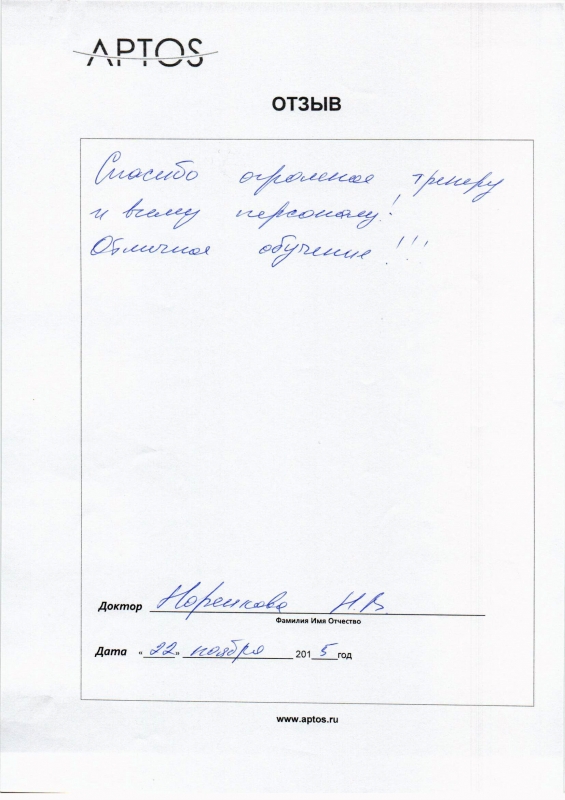 APTOS
ОТЗЫВ
Спасибо огромное тренеру
и всему персоналу!
Отличное обучение!!!
Доктор Норенкова Н.В.
Фамилия Имя Отчество
Дата «22» ноября 2015 год
www.aptos.ru